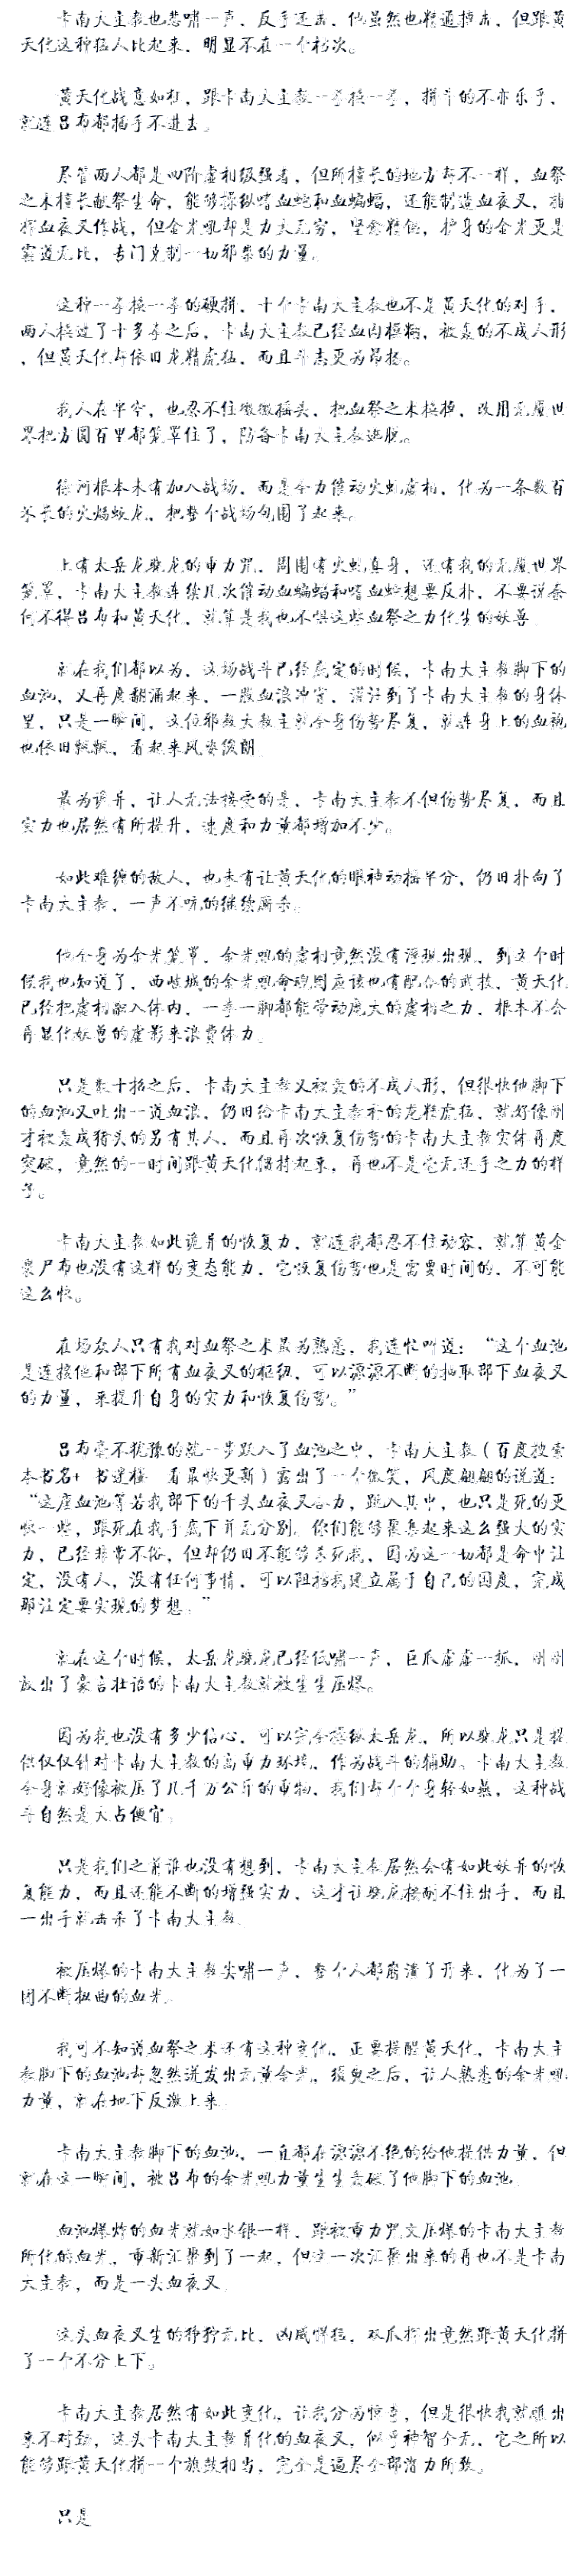 卡南大主教也悲啸一声，反手还击，他虽然也精通搏击，但跟黄
天化这种猛人比起来，明显不在一个档次。
黄天化战意如狂，跟卡南大主教一拳换一拳，拼斗的不亦乐乎，
就连吕布都插手不进去。
尽管两人都是四阶虚相级强者，但所擅长的地方却不一样，血祭
之术擅长献祭生命，能够操纵嗜血蛇和血蝙蝠，还能制造血夜叉，指
挥血夜叉作战，但金光吼却是力大无穷，坚愈精钢，护身的金光更是
霸道无比，专门克制一切邪祟的力量。
这种一拳换一拳的硬拼，十个卡南大主教也不是黄天化的对手，
两人换过了十多拳之后，卡南大主教已经血肉模糊，被轰的不成人形
，但黄天化却依旧龙精虎猛，而且斗志更为昂扬。
我人在半空，也忍不住微微摇头，把血祭之术换掉，改用无魇世
界把方圆百里都笼罩住了，防备卡南大主教逃脱。
徐河根本未有加入战场，而是全力催动火虬虚相，化为一条数百
米长的火焰蛟龙，把整个战场包围了起来。
上有太岳龙骁龙的重力咒，周围有火虬真身，还有我的无魇世界
笼罩，卡南大主教连续几次催动血蝙蝠和嗜血蛇想要反扑，不要说奈
何不得吕布和黄天化，就算是我也不惧这些血祭之力化生的妖兽
就在我们都以为，这场战斗已经底定的时候，卡南大主教脚下的
血池，又再度翻涌起来，一股血浪冲霄，灌注到了卡南大主教的身体
里，只是一瞬间，这位邪教大教主就全身伤势尽复，就连身上的血袍
也依旧飘飘，看起来风姿俊朗
最为诡异，让人无法接受的是，卡南大主教不但伤势尽复，而且
实力也居然有所提升，速度和力量都增加不少。
如此难缠的敌人，也未有让黄天化的眼神动摇半分，仍旧扑向了
卡南大主教，一声不吭的继续厮杀。
他全身为金光笼罩，金光吼的虚相竟然没有浮现出现，到这个时
候我也知道了，西岐城的金光吼命魂图应该也有配合的武技，黄天化
已经把虚相融入体内，一拳一脚都能带动庞大的虚相之力，根本不会
再显化妖兽的虚影来浪费体力。
只是数十招之后，卡南大主教又被轰的不成人形，但很快他脚下
的血池又吐出一道血浪，仍旧给卡南大主教补的龙精虎猛，就好像刚
才被轰成猪头的另有其人，而且再次恢复伤势的卡南大主教实体再度
突破，竟然的一时间跟黄天化僵持起来，再也不是毫无还手之力的样
子。
卡南大主教如此诡异的恢复力，就连我都忍不住动容，就算黄金
丧尸布也没有这样的变态能力，它恢复伤势也是需要时间的，不可能
这么快。
在场众人只有我对血祭之术最为熟悉，我连忙叫道：“这个血池
是连接他和部下所有血夜叉的枢纽，可以源源不断的抽取部下血夜叉
的力量，来提升自身的实力和恢复伤势。”
吕布毫不犹豫的就一步跃入了血池之中，卡南大主教（百度搜索
本书名+ 书迷楼 看最快更新）露出了一个微笑，风度翩翩的说道：
“这座血池等若我部下的千头血夜叉合力，跳入其中，也只是死的更
快一些，跟死在我手底下并无分别。你们能够聚集起来这么强大的实
力，已经非常不俗，但却仍旧不能够杀死我，因为这一切都是命中注
定，没有人，没有任何事情，可以阻挡我建立属于自己的国度，完成
那注定要实现的梦想。”
就在这个时候，太岳龙骁龙已经低啸一声，巨爪虚虚一抓，刚刚
放出了豪言壮语的卡南大主教就被生生压爆。
因为我也没有多少信心，可以完全操纵太岳龙，所以骁龙只是提
供仅仅针对卡南大主教的高重力环境，作为战斗的辅助。卡南大主教
全身就好像被压了几千万公斤的重物，我们却个个身轻如燕，这种战
斗自然是大占便宜。
只是我们之前谁也没有想到，卡南大主教居然会有如此妖异的恢
复能力，而且还能不断的增强实力，这才让骁龙按耐不住出手，而且
一出手就击杀了卡南大主教
被压爆的卡南大主教尖啸一声，整个人都崩溃了开来，化为了一
团不断扭曲的血光
我可不知道血祭之术还有这种变化，正要提醒黄天化，卡南大主
教脚下的血池却忽然迸发出无量金光，须臾之后，让人熟悉的金光吼
力量，就在地下反激上来
卡南大主教脚下的血池，一直都在源源不绝的给他提供力量，但
就在这一瞬间，被吕布的金光吼力量生生轰破了他脚下的血池
血池爆炸的血光就如水银一样，跟被重力咒文压爆的卡南大主教
所化的血光，重新汇聚到了一起，但这一次汇聚出来的再也不是卡南
大主教，而是一头血夜叉
这头血夜叉生的狰狞无比，凶威悍猛，双爪探出竟然跟黄天化拼
了一个不分上下。
卡南大主教居然有如此变化，让我分为惊奇，但是很快我就瞧出
来不对劲，这头卡南大主教身化的血夜叉，似乎神智全无，它之所以
能够跟黄天化拼一个旗鼓相当，完全是逼尽全部潜力所致。
只是